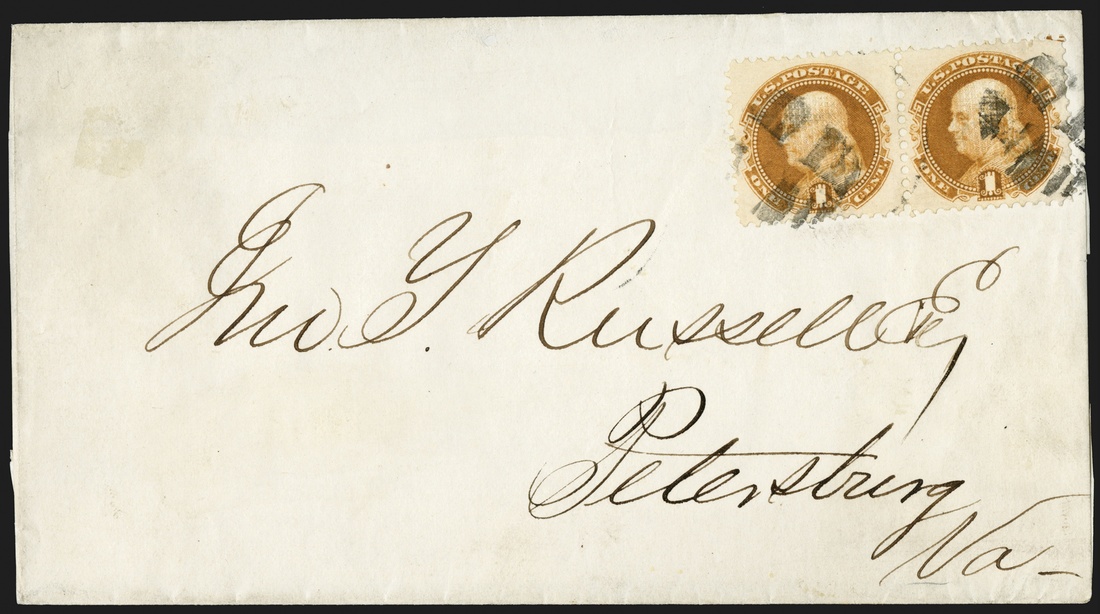 U.S. POSTAGE
ONE 1 CENT.
U.S. POSTAGE
ONE 1 CENT.
Jno. Y. Russell Esq
Petersburg
Va